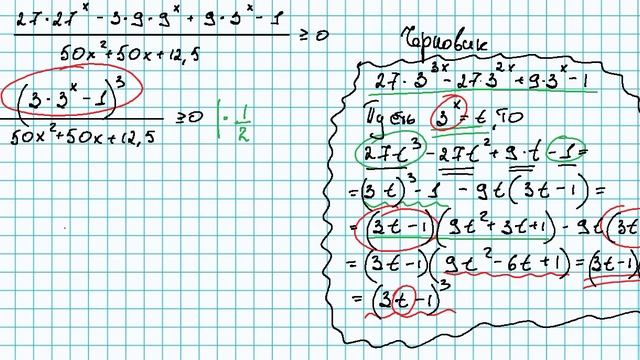 27·27ˣ − 3·9·9ˣ + 9·3ˣ − 1
50x² + 50x + 12,5
≥ 0
(3·3ˣ − 1)³
50x² + 50x + 12,5
≥ 0 | · 1/2
Черновик
27·3³ˣ − 27·3²ˣ + 9·3ˣ − 1
Пусть 3ˣ = t, то
27t³ − 27t² + 9·t − 1 =
= (3t)³ − 1 − 9t(3t − 1) =
= (3t − 1)(9t² + 3t + 1) − 9t(3t
= (3t − 1)(9t² − 6t + 1) = (3t − 1)
= (3t − 1)³